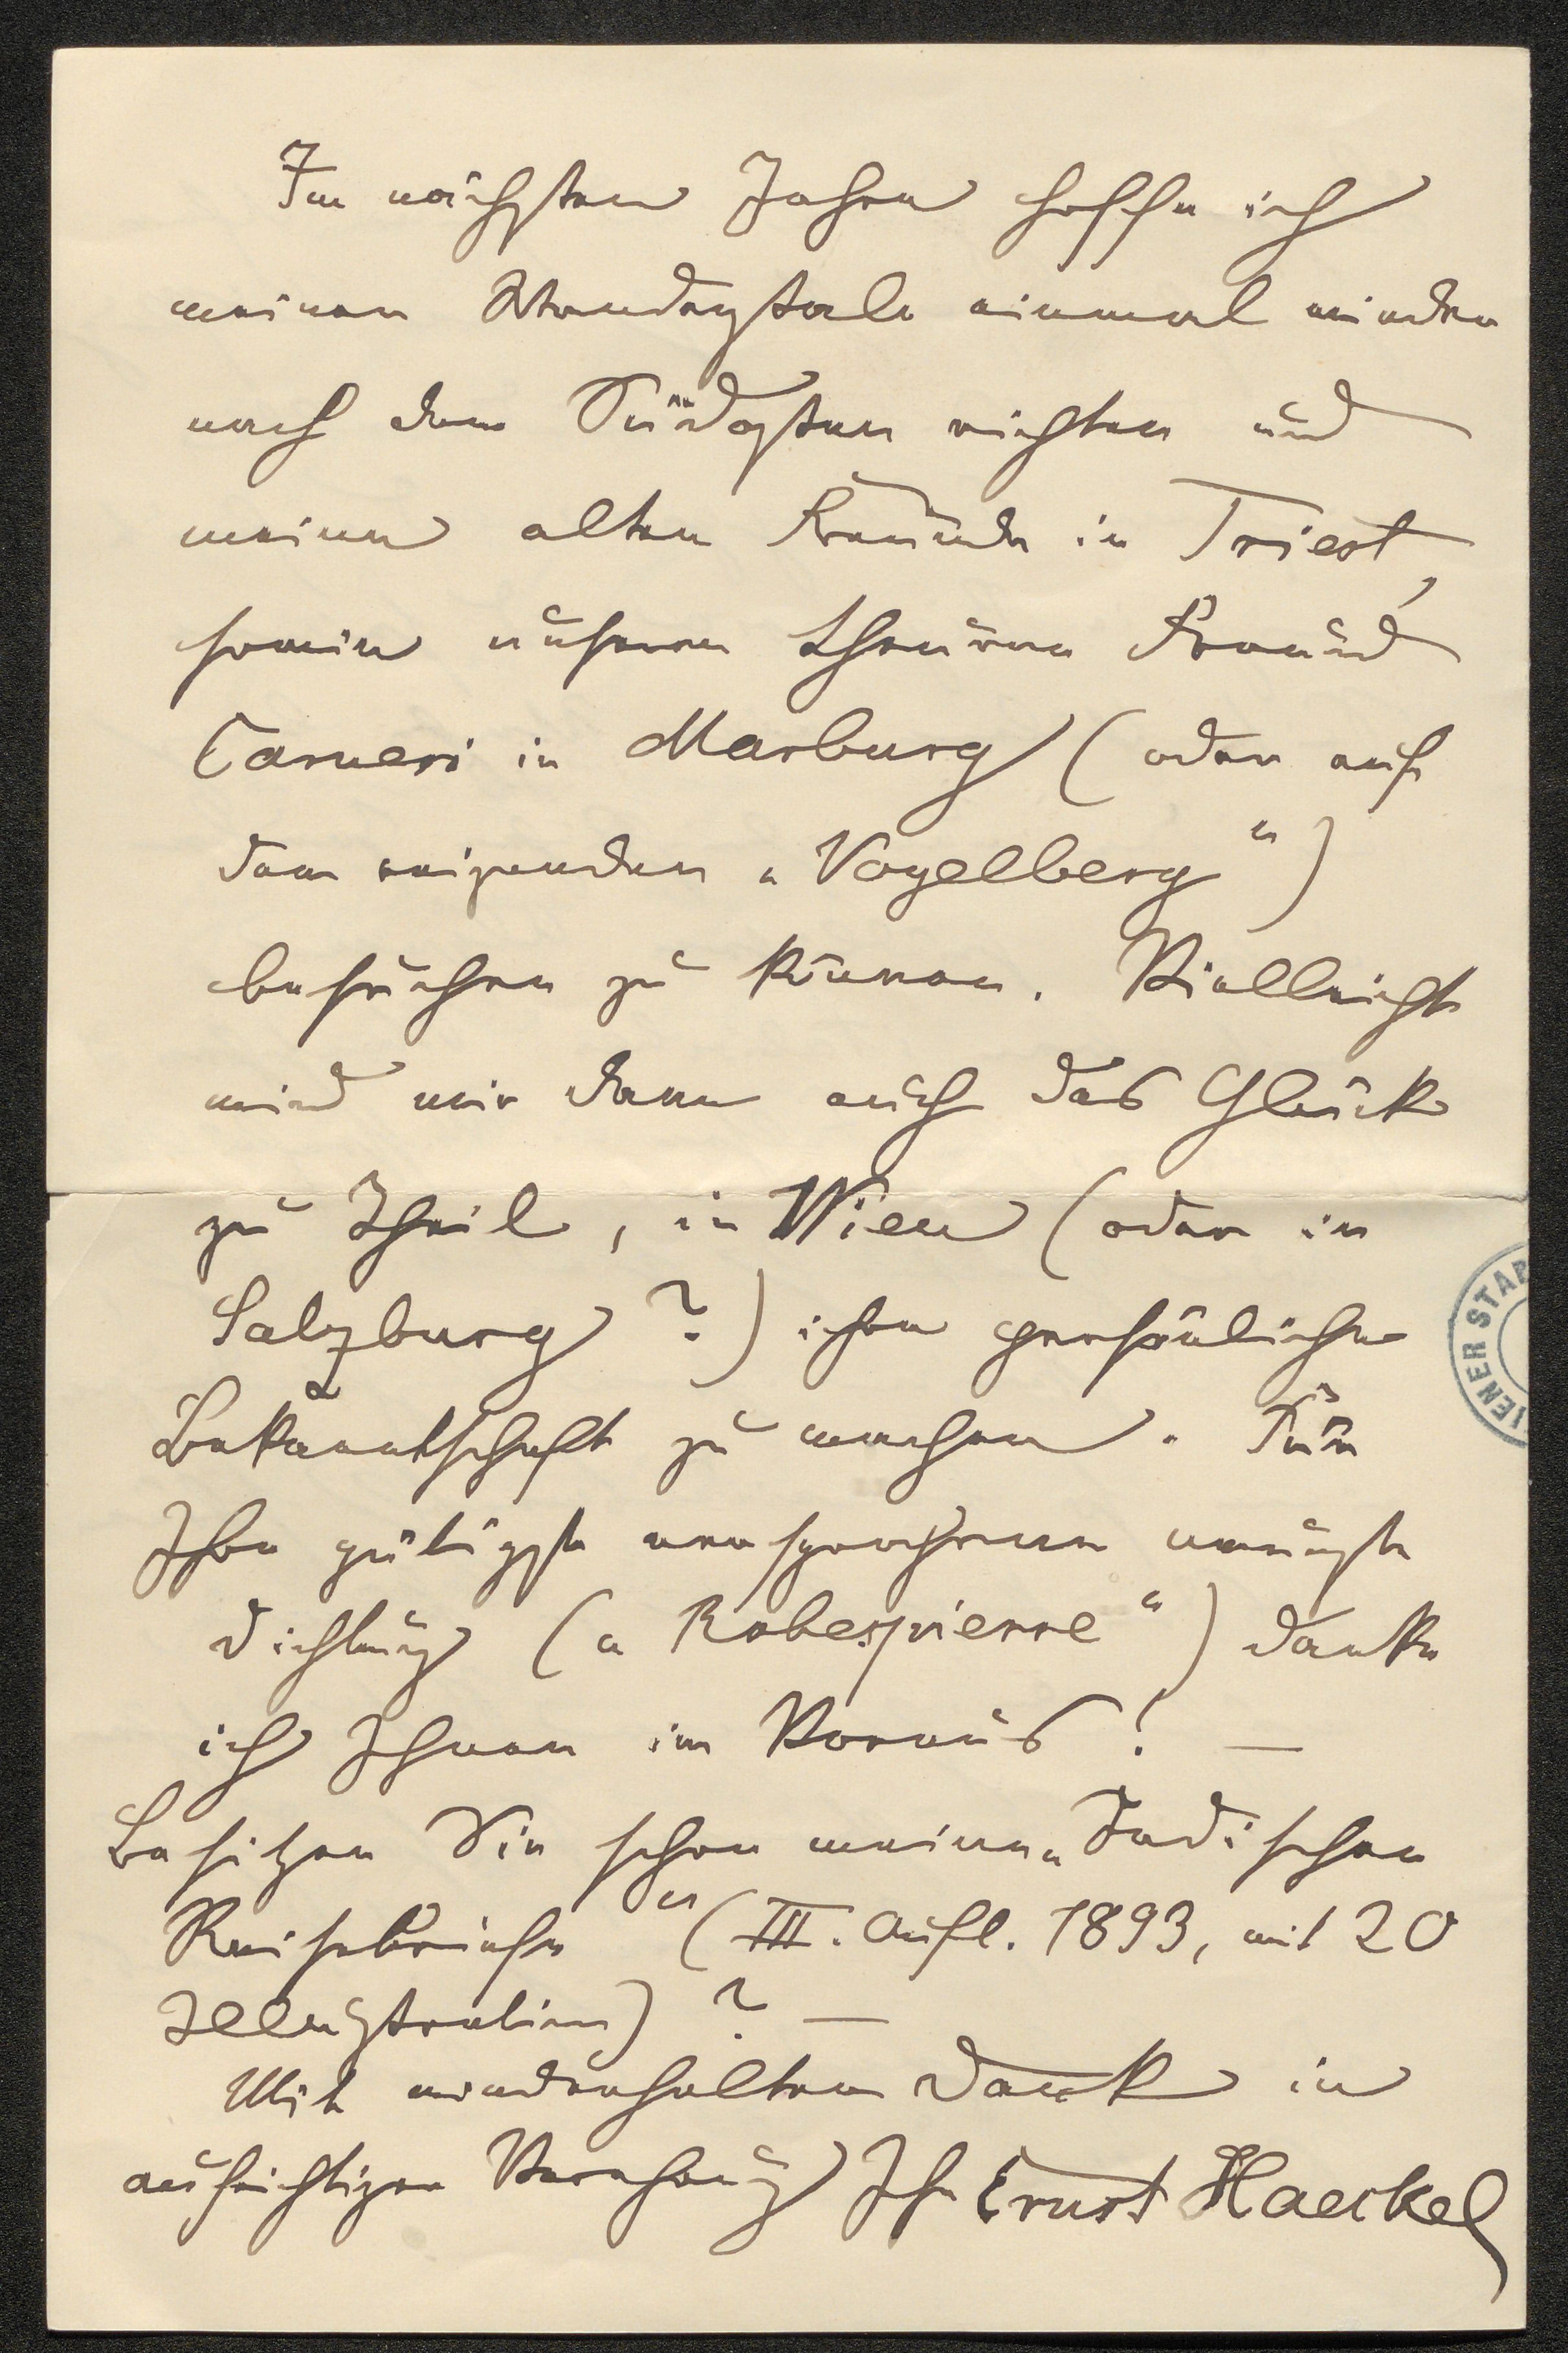 Im nächsten Jahre hoffe ich
meinen Wanderstab einmal wieder
nach dem Südosten richten und
meine alten Freunde in Triest,
sowie unseren theuren Freund
Carneri in Marburg (oder auf
dem reizenden „Vogelberg“)
besuchen zu können. Vielleicht
wird mir dann auch das Glück
zu Theil, in Wien (oder in
Salzburg?) ihre persönliche
Bekanntschaft zu machen. Für
Ihre gütigst versprochene neueste
Dichtung („Robespierre“) danke
ich Ihnen im Voraus! —
Besitzen Sie schon meine „Indischen
Reisebriefe“ (III. Aufl. 1893, mit 20
Illustrationen)? —
Mit wiederholtem Dank in
aufrichtiger Verehrung Ihr Ernst Haeckel